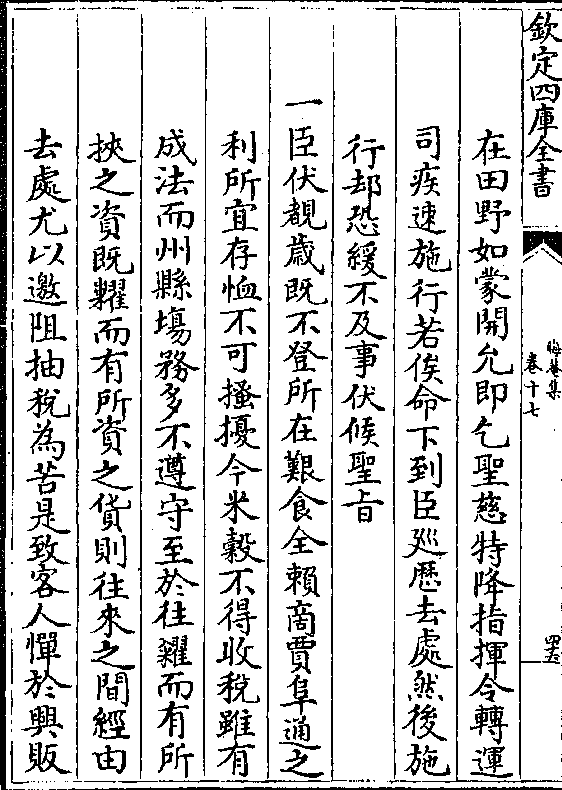 欽定四庫全書
晦菴集
卷十七
四十五
在田野如蒙開允即乞聖慈特降指揮令轉運
司疾速施行若俟命下到臣廵歷去處然後施
行却恐緩不及事伏候聖旨
一臣伏覩歲既不登所在艱食全賴商賈阜通之
利所宜存恤不可搔擾今米榖不得收稅雖有
成法而州縣塲務多不遵守至於往糴而有所
挾之資既糶而有所資之貨則往來之間經由
去處尤以邀阻抽稅為苦是致客人憚於興販